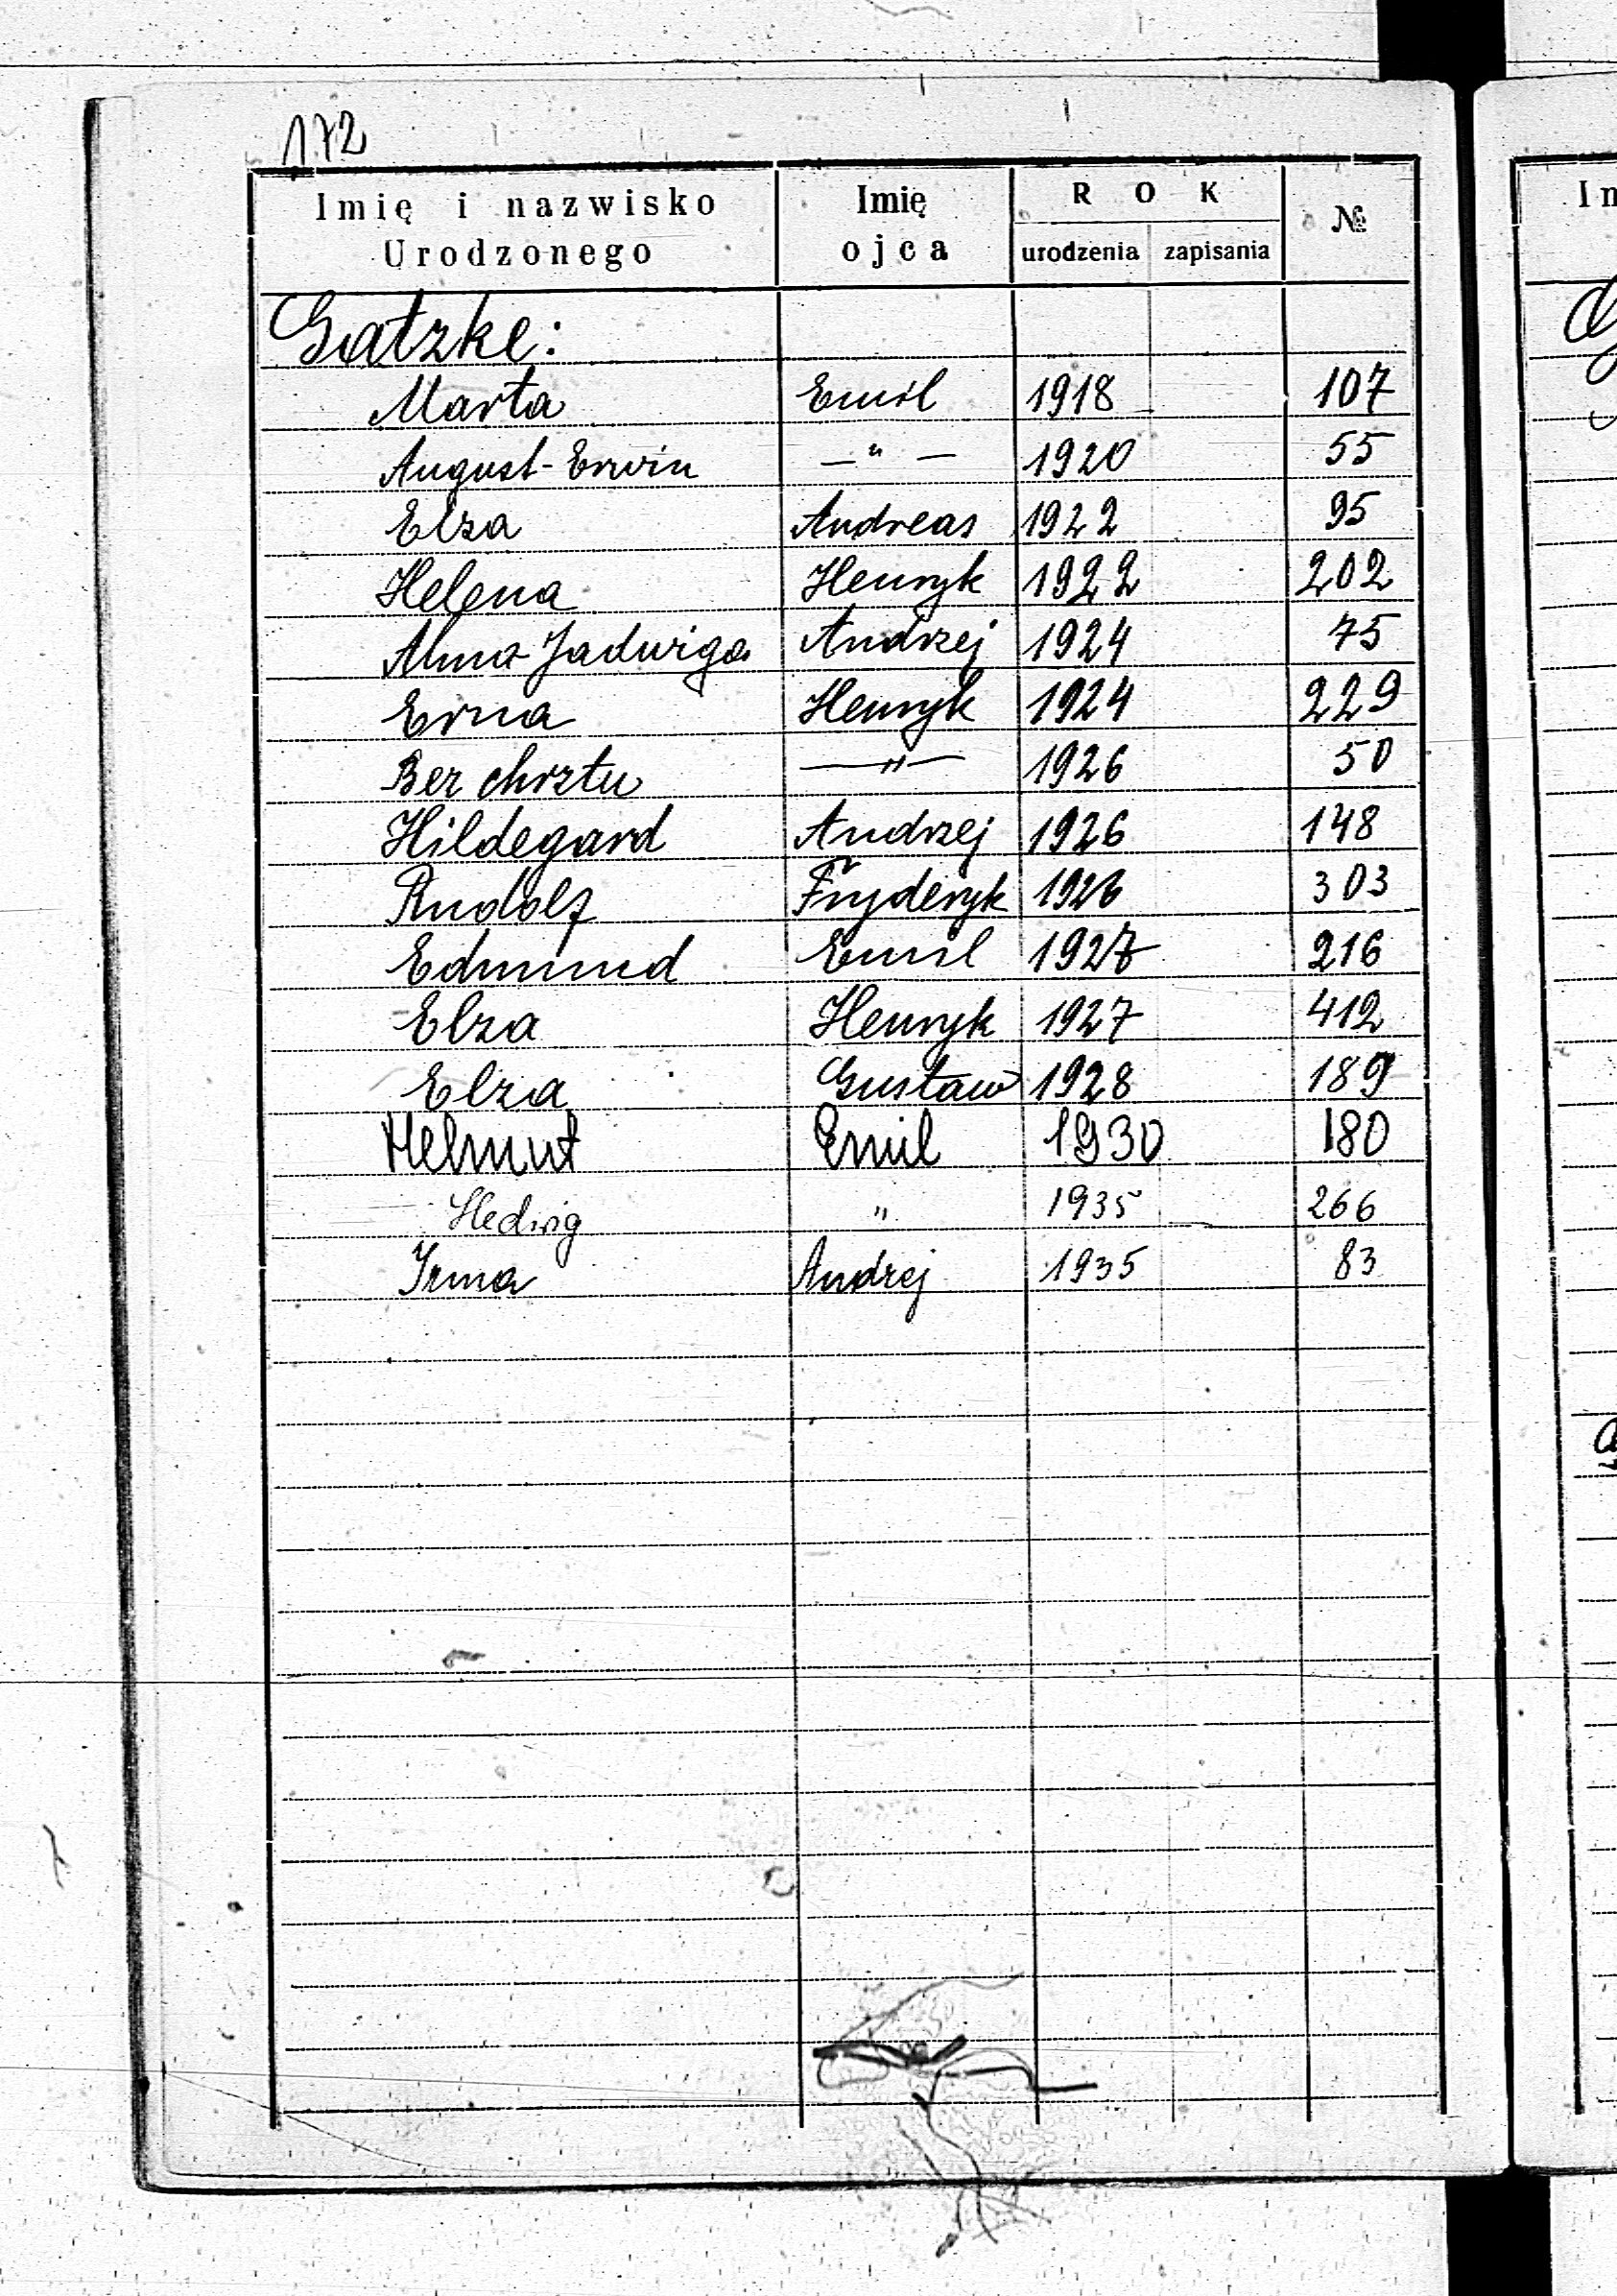 172
Imię i nazwisko Urodzonego | Imię ojca | ROK urodzenia | zapisania | №
Gatzke:
Marta Emil 1918 107
August-Erwin —"— 1920 55
Elza Andreas 1922 95
Helena Henryk 1922 202
Alma Jadwiga Andrzej 1924 75
Erna Henryk 1924 229
Bez chrztu —"— 1926 50
Hildegard Andrzej 1926 148
Rudolf Fryderyk 1926 303
Edmund Emil 1927 216
Elza Henryk 1927 412
Elza Gustaw 1928 189
Helmut Emil 1930 180
Hedwig " 1935 266
Irma Andrzej 1935 83